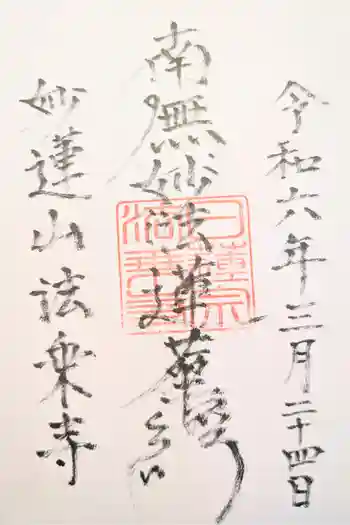 令和六年三月二十四日
南無妙法蓮華経
妙蓮山法乗寺